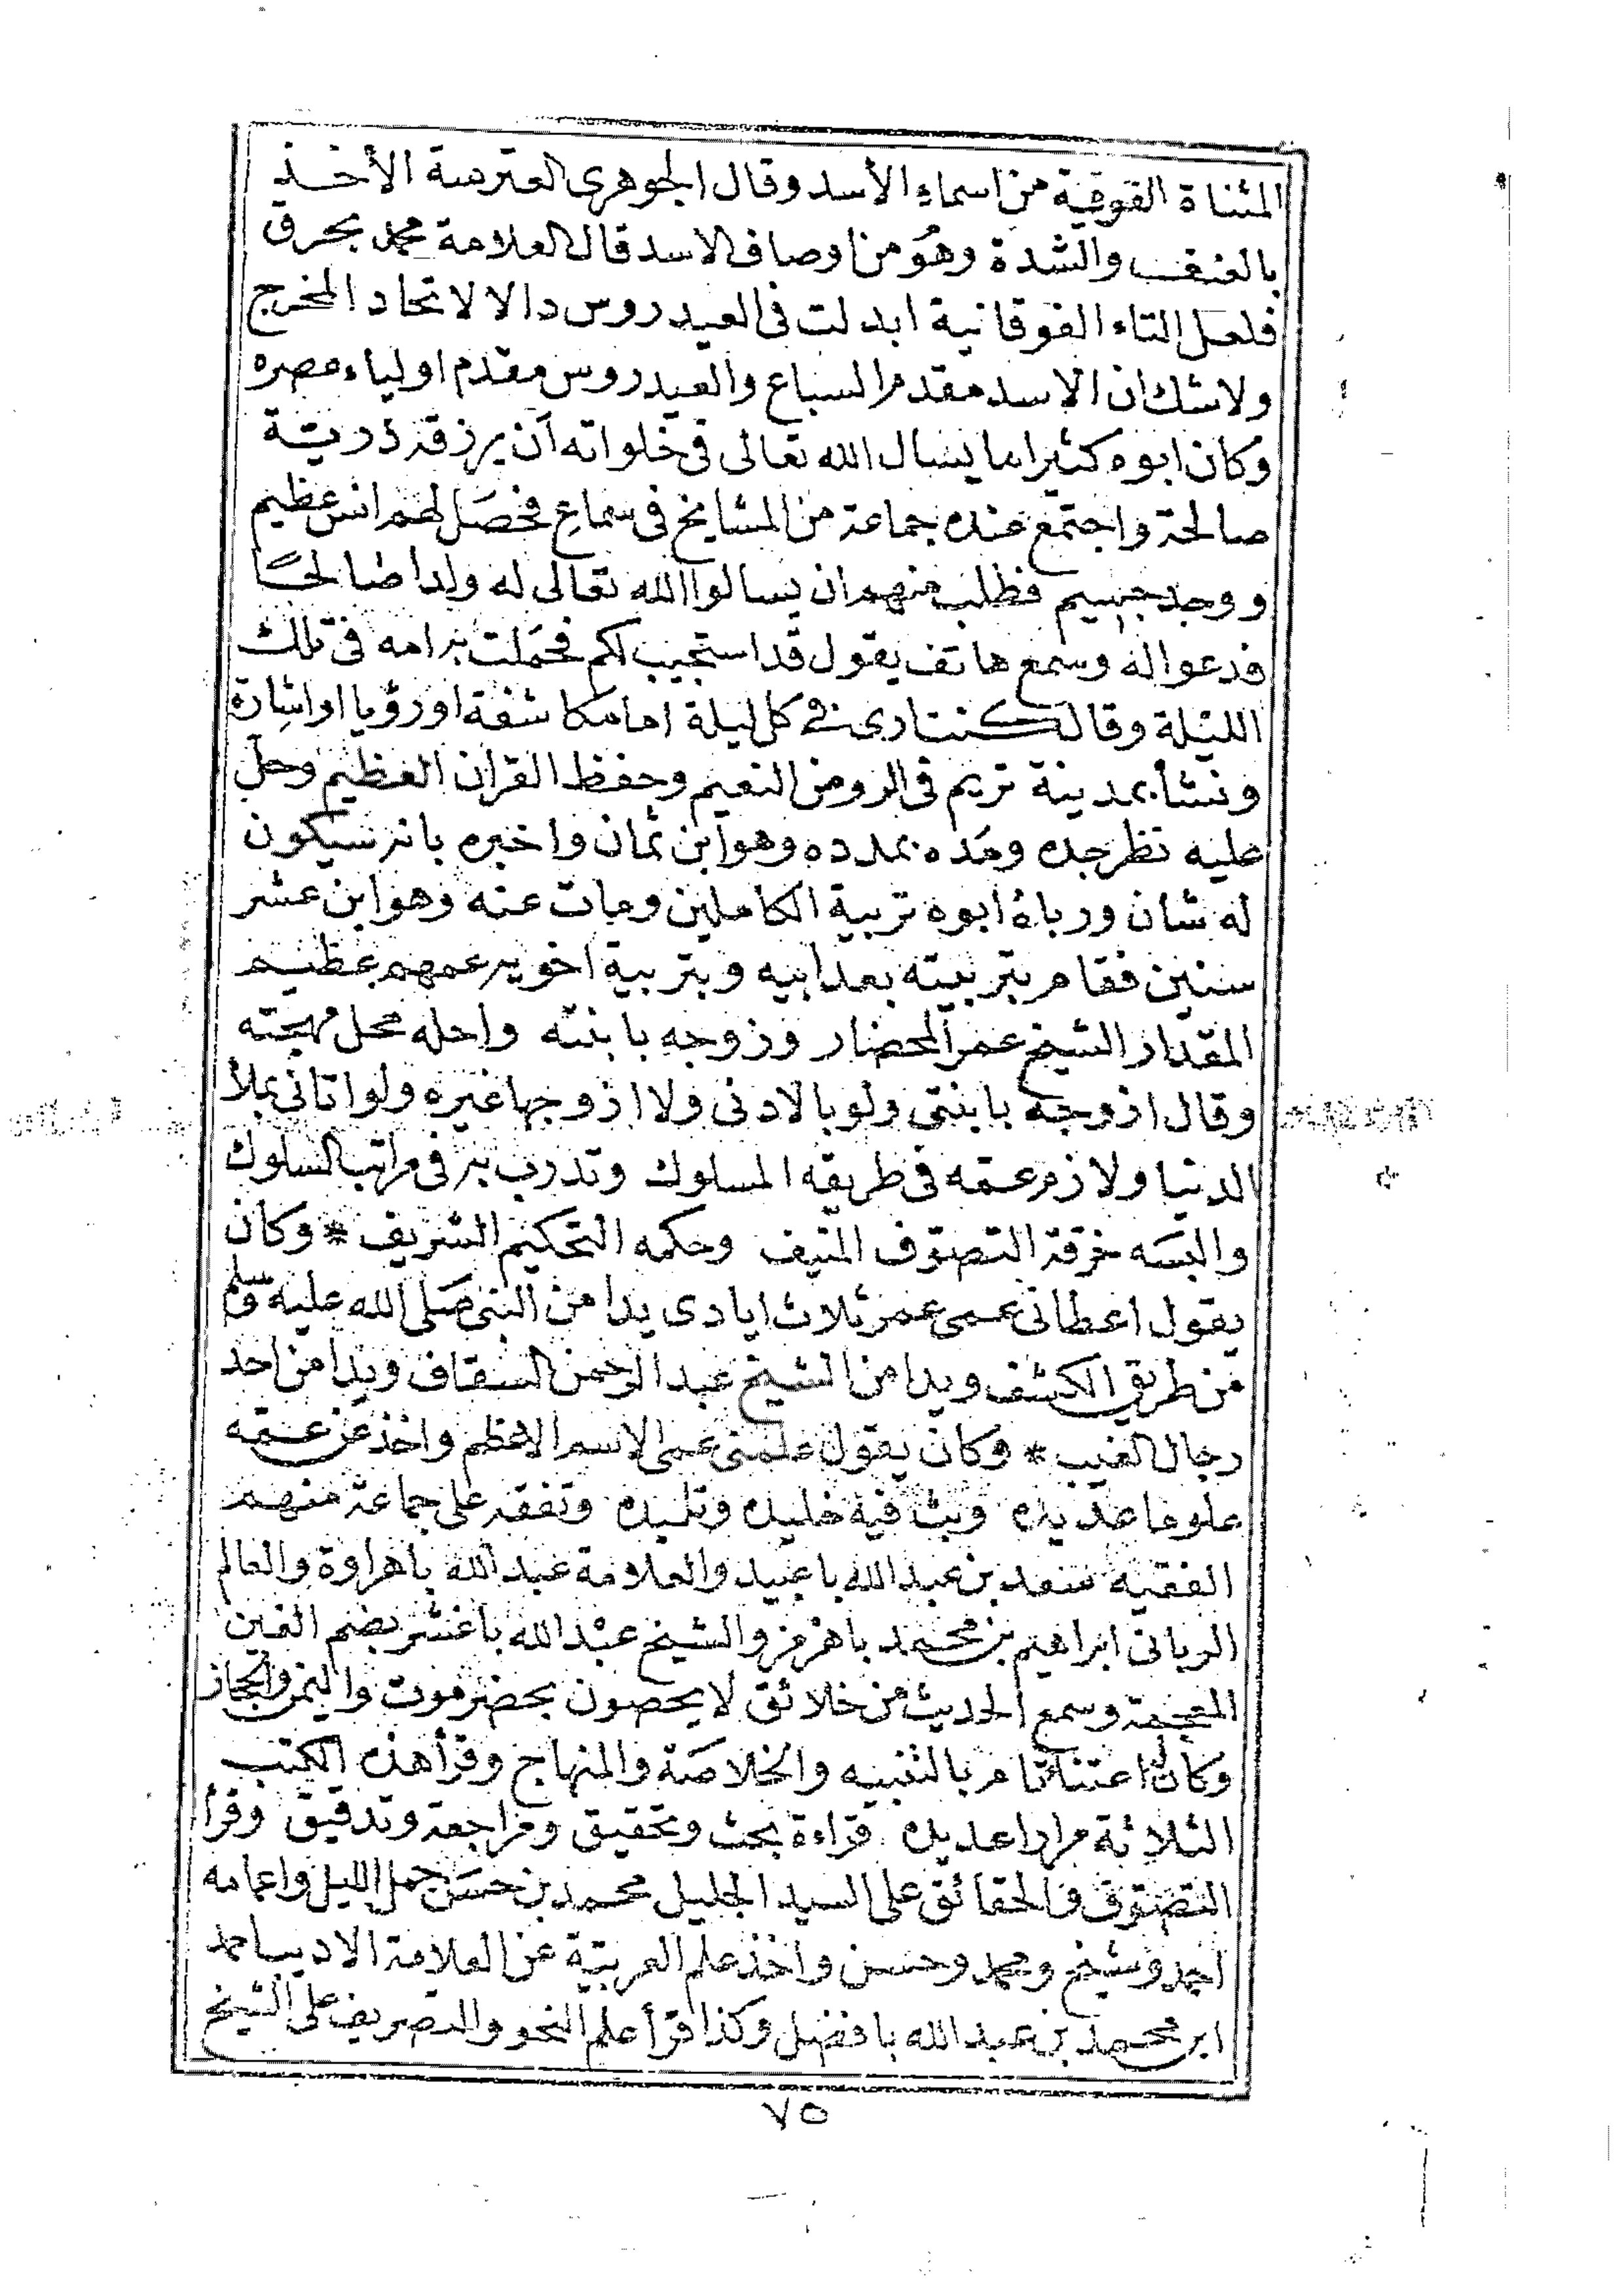 المثناة الفوقية من اسماء الأسد وقال الجوهرى العترسة الأخذ
بالعنف والشدة وهو من اوصاف الاسد قال العلامة محمد بحرق
فلعل التاء الفوقانية ابدلت فى العيدروس دالا لاتحاد المخرج
ولاشك ان الاسد مقدم السباع والعيدروس مقدم اولياء عصره
وكان ابوه كثيرا ما يسال الله تعالى فى خلواته أن يرزقه ذرية
صالحة واجتمع عنده جماعة من المشايخ فى سماع فحصل لهم انس عظيم
ووجد جسيم فطلب منهم ان يسالوا الله تعالى له ولدا صالحا
فدعوا له وسمع هاتف يقول قد استجيب لكم فحملت به امه فى تلك
الليلة وقالت كنت ارى فى كل ليلة اما مكاشفة او رؤيا او اشارة
ونشأ بمدينة تريم فى الروض النعيم وحفظ القران العظيم وحل
عليه نظر جده ومده بمدده وهو ابن ثمان واخبره بانه سيكون
له شان ورباه ابوه تربية الكاملين ومات عنه وهو ابن عشر
سنين فقام بتربيته بعد ابيه وبتربية اخويه عمهم عظيم
المقدار الشيخ عمر المحضار وزوجه بابنته واحله محل مهجته
وقال ازوجه بابنتى ولو بالادنى ولا ازوجها غيره ولو اتانى بملأ
الدنيا ولازم عمه فى طريقه المسلوك وتدرب به فى مراتب السلوك
والبسه خرقة التصوف المنيف وحكمه التحكيم الشريف * وكان
يقول اعطانى عمى عمر ثلاث ايادى يدا من النبى صلى الله عليه وسلم
من طريق الكشف ويدا من الشيخ عبد الرحمن السقاف ويدا من احد
رجال الغيب * وكان يقول علمنى عمى الاسم الاعظم واخذ عن عمه
علوما عديده وبث فيه خليده وتليده وتفقه على جماعة منهم
الفقيه سعد بن عبد الله باعبيد والعلامة عبد الله باهراوة والعالم
الربانى ابراهيم بن محمد باهرمز والشيخ عبد الله باغشر بضم الغين
المعجمة وسمع الحديث من خلائق لا يحصون بحضرموت واليمن والحجاز
وكان له اعتناء تام بالتنبيه والخلاصة والمنهاج وقرأ هذه الكتب
الثلاثة مرارا عديده قراءة بحث وتحقيق ومراجعة وتدقيق وقرأ
التصوف والحقائق على السيد الجليل محمد بن حسن جمل الليل واعمامه
احمد وشيخ ومحمد وحسن واخذ علم العربية عن العلامة الاديب احمد
ابن محمد بن عبد الله بافضل وكذا قرأ علم النحو والتصريف على الشيخ
٧٥